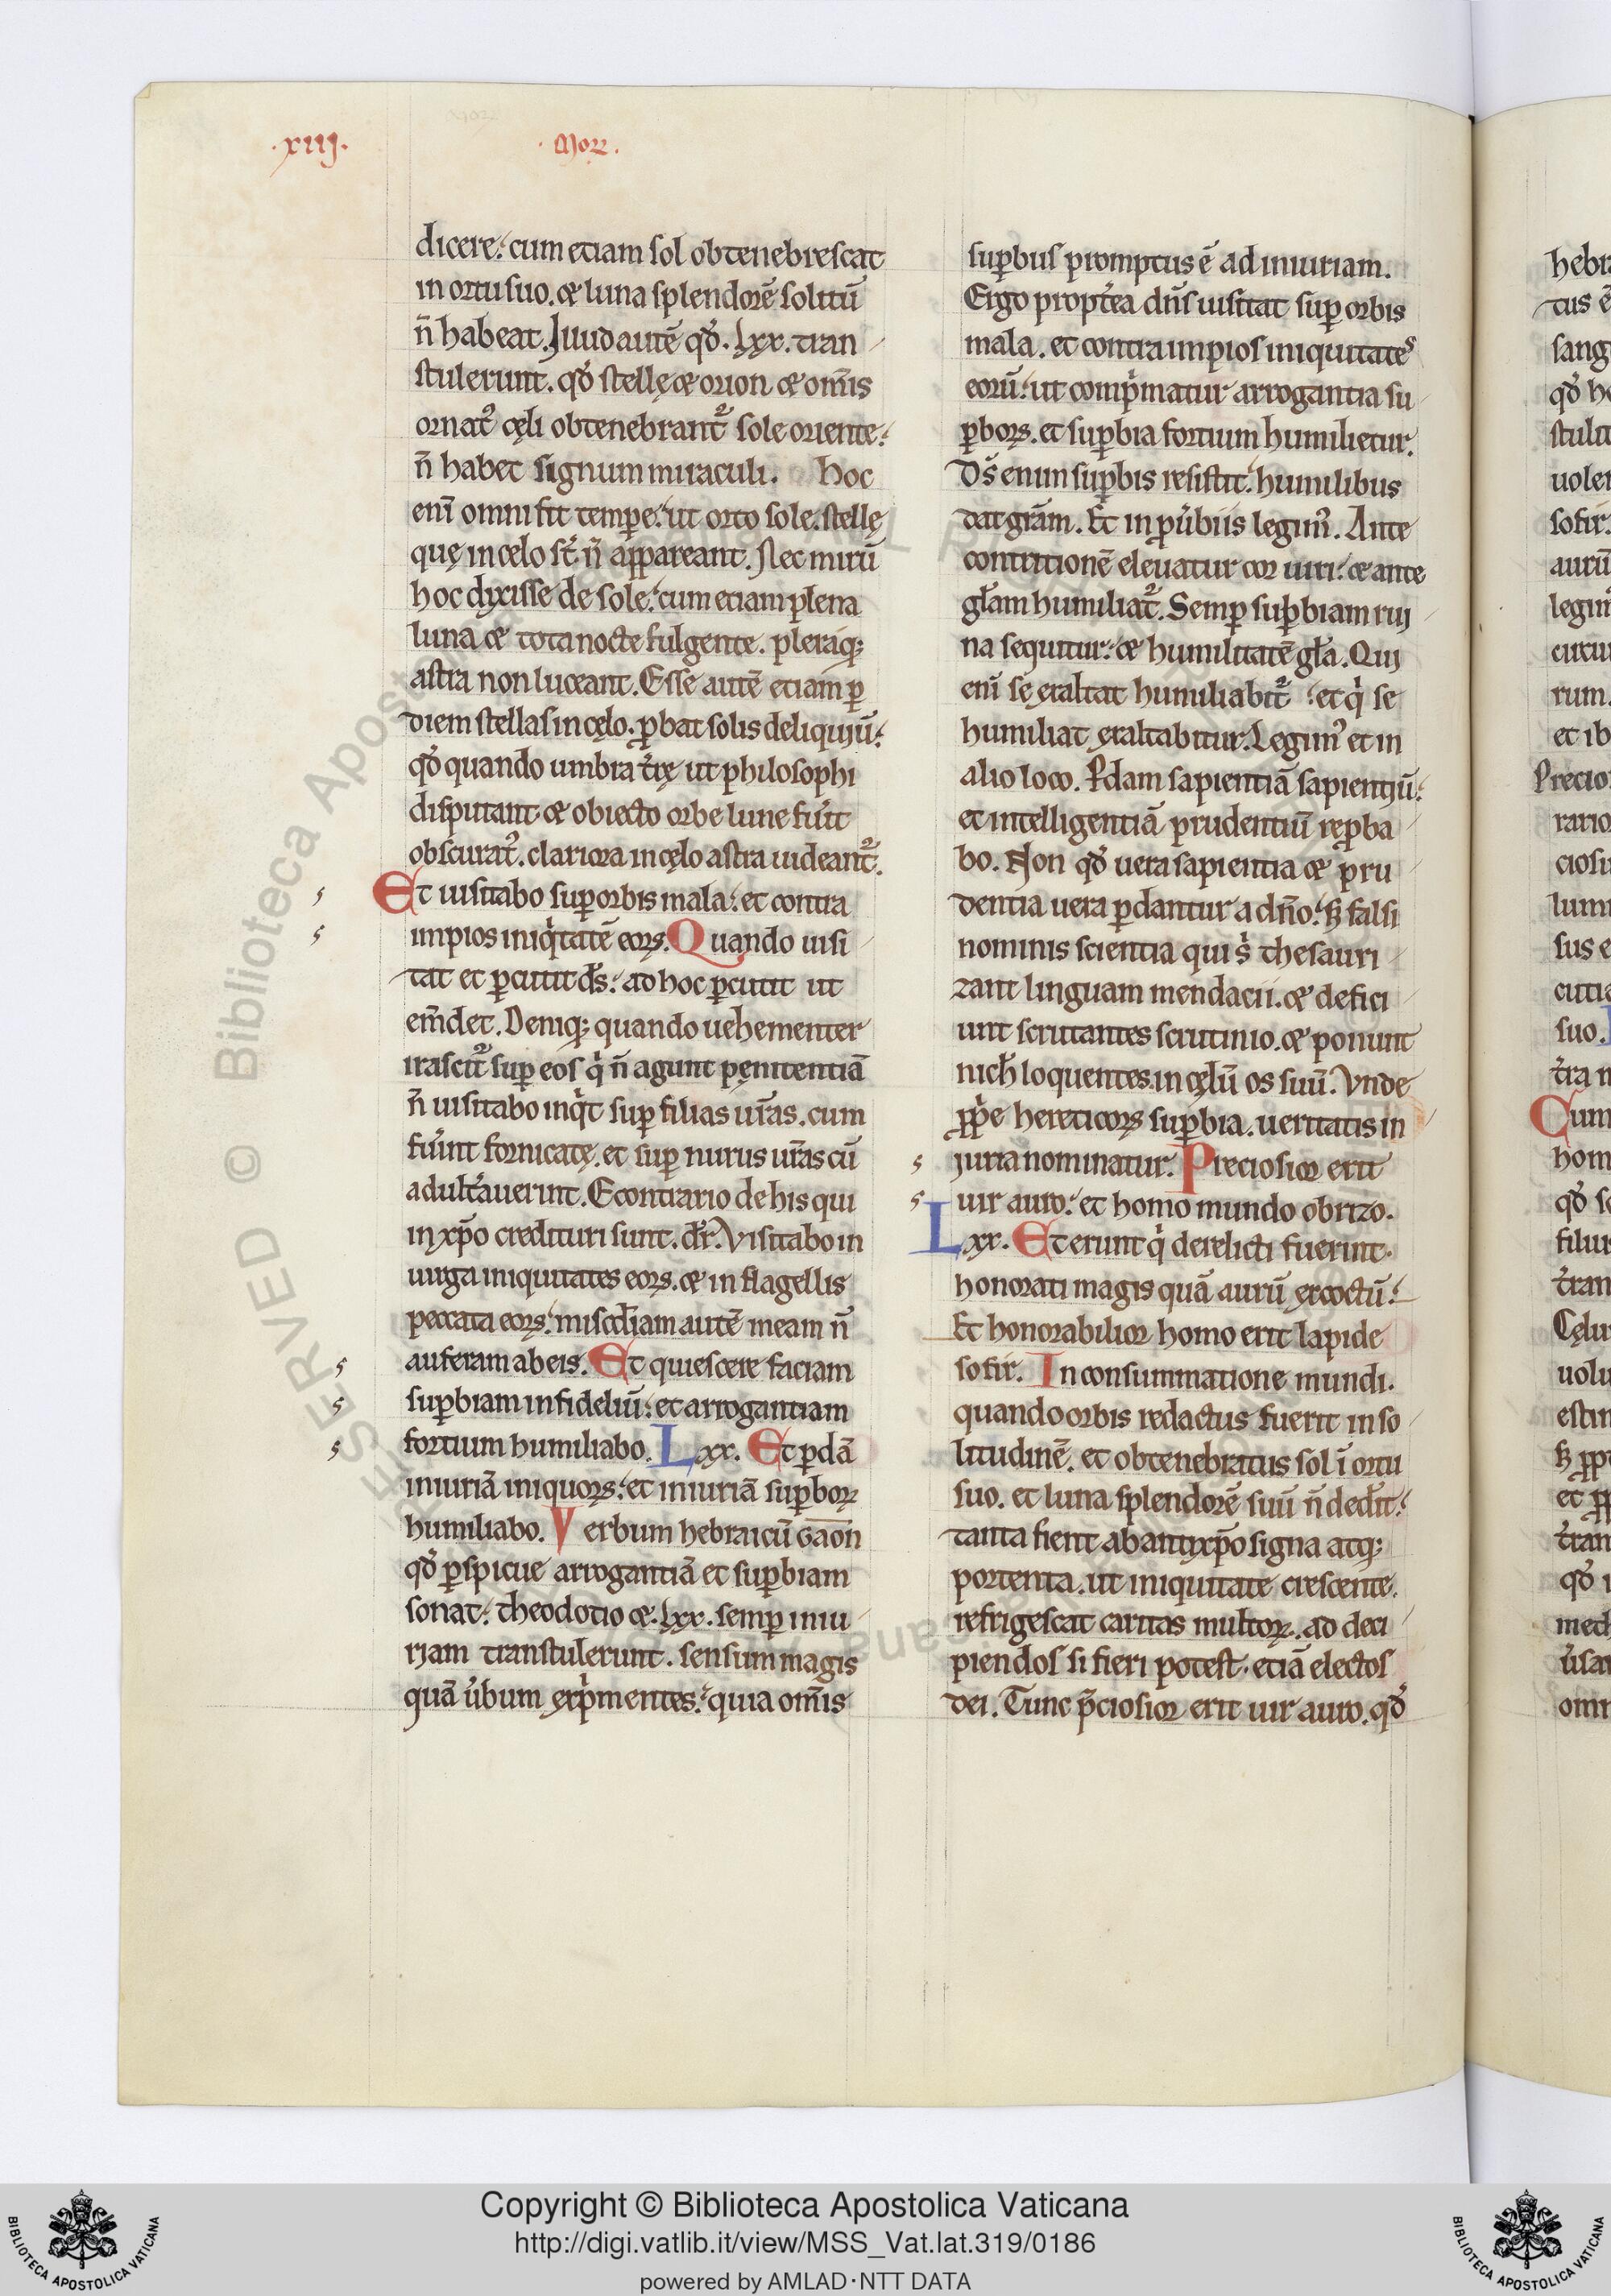 .xiij.
. Morr .
dicere: cum etiam sol obtenebrescat
in ortu suo. & luna splendorē solitū
n̄ habeat. Illud autē qd̓. Lxx. tran
stulerunt. qd̓ stellę & orion & om̄s
ornat᷒ cęli obtenebrant᷒ sole oriente:
n̄ habet signum miraculi. Hoc
enī omni fit tempꝑe: ut orto sole. stellę
quę in cęlo st̄ n̄ appareant. Nec mirū
hoc dixisse de sole: cum etiam plena
luna & tota nocte fulgente. pleraq;
astra non luceant. Esse autē etiam ꝑ
diem stellas in cęlo. ꝓbat solis deliquiū:
qd̓ quando umbra t̓rę ut philosophi
disputant & obiecto orbe lune fu̓it
obscurat᷒. clariora in cęlo astra uideant᷒.
Et uisitabo suꝑ orbis mala: et contra
impios iniq̇tatē eoꝝ. Quando uisi
tat et ꝑcutit d̄s: ad hoc ꝑcutit ut
em̄det. Deniq; quando uehementer
irascit᷒ suꝑ eos q̇ n̄ agunt pęnitentiā
n̄ uisitabo inq̇t suꝑ filias ur̄as. cum
fu̓int fornicatę. et suꝑ nurus ur̄as cū
adult̓auerint. Econtrario de his qui
in xp̄o credituri sunt. dr̄. Visitabo in
uirga iniquitates eoꝝ. & in flagellis
peccata eoꝝ: misc̄diam autē meam n̄
auferam ab eis. Et quiescere faciam
suꝑbiam infideliū: et arrogantiam
fortium humiliabo. Lxx. Et ꝑdā
iniuriā iniquoꝝ: et iniuriā suꝑboꝝ
humiliabo. Verbum hebraicū GAON
qd̓ ꝑspicue arrogantiā et suꝑbiam
sonat: theodotio & Lxx. semꝑ iniu
riam transtulerunt. sensum magis
quā u̓bum exp̓mentes: quia om̄is
suꝑbus promptus ē ad iniuriam.
Ergo propt̓ea dn̄s uisitat suꝑ orbis
mala. et contra impios iniquitates
eorū: ut comp̓matur arrogantia su
ꝑboꝝ. et suꝑbia fortium humilietur.
Ds̄ enim suꝑbis resistit: humilibus
dat gr̄am. Et in ꝓu̓biis legim᷒. Ante
contritionē eleuatur cor uiri: & ante
gl̄am humiliat᷒. Semꝑ suꝑbiam rui
na sequitur: & humilitatē gl̄a. Qui
enī se exaltat humiliabit᷒: et q̇ se
humiliat exaltabitur. Legim᷒ et in
alio loco. Ꝑdam sapientiā sapientiū:
et intelligentiā prudentiū reꝓba
bo. Non qd̓ uera sapientia & pru
dentia uera ꝑdantur a dn̄o: sꝫ falsi
nominis scientia qui s̓ thesauri
zant linguam mendacii. & defici
unt scrutantes scrutinio. & ponunt
nich̄ loquentes. in cęlū os suū. Vnde
ꝓp̓e hereticoꝝ suꝑbia. ueritatis in
iuria nominatur. Preciosior erit
uir auro: et homo mundo obrizo.
Lxx. Et erunt q̇ derelicti fuerint.
honorati magis quā aurū excoctū:
Et honorabilior homo erit lapide
sofir. In consummatione mundi.
quando orbis redactus fuerit in so
litudinē. et obtenebratus sol ī ortu
suo. et luna splendorē suū n̄ ded̓it:
tanta fient ab antixp̄o signa atq;
portenta. ut iniquitate crescente.
refrigescat caritas multoꝝ. ad deci
piendos si fieri potest. etiā electos
dei. Tunc p̄ciosior erit uir auro. qd̓
Copyright © Biblioteca Apostolica Vaticana
http://digi.vatlib.it/view/MSS_Vat.lat.319/0186
powered by AMLAD·NTT DATA